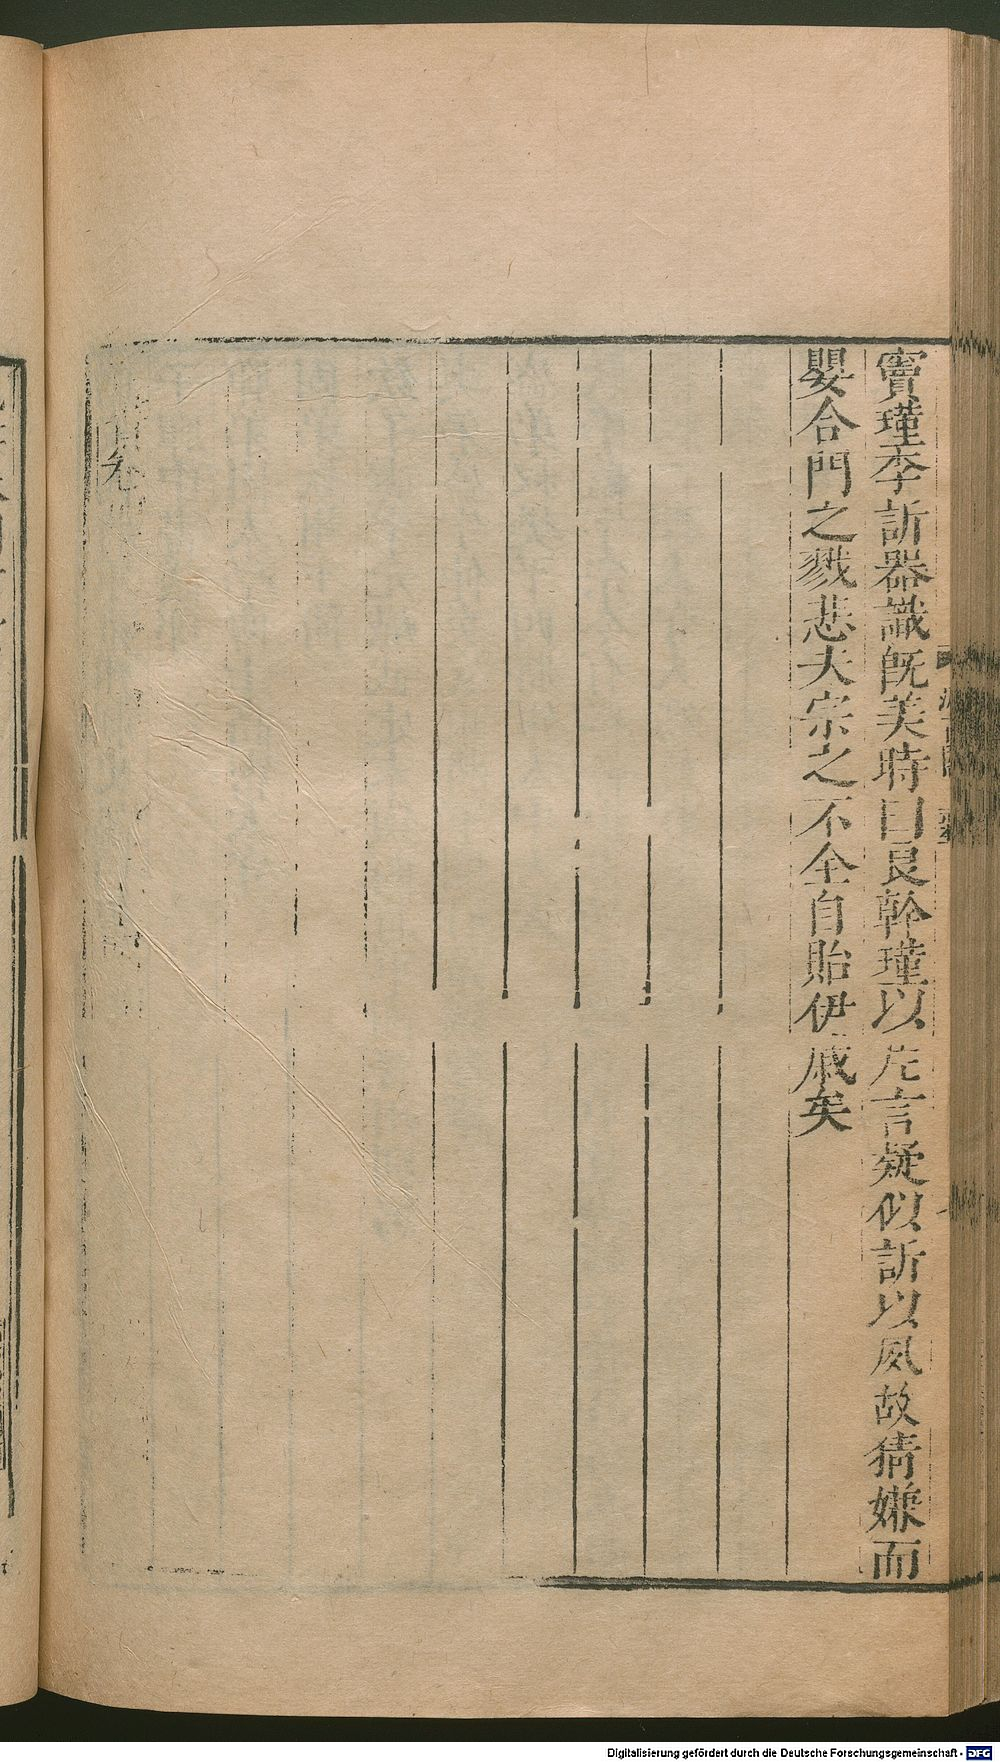 竇瑾李訢器識旣美時曰良幹瑾以片言疑似訢以夙故猜嫌而
嬰合門之戮悲夫宗之不全自貽伊戚矣
Digitalisierung gefördert durch die Deutsche Forschungsgemeinschaft - DFG